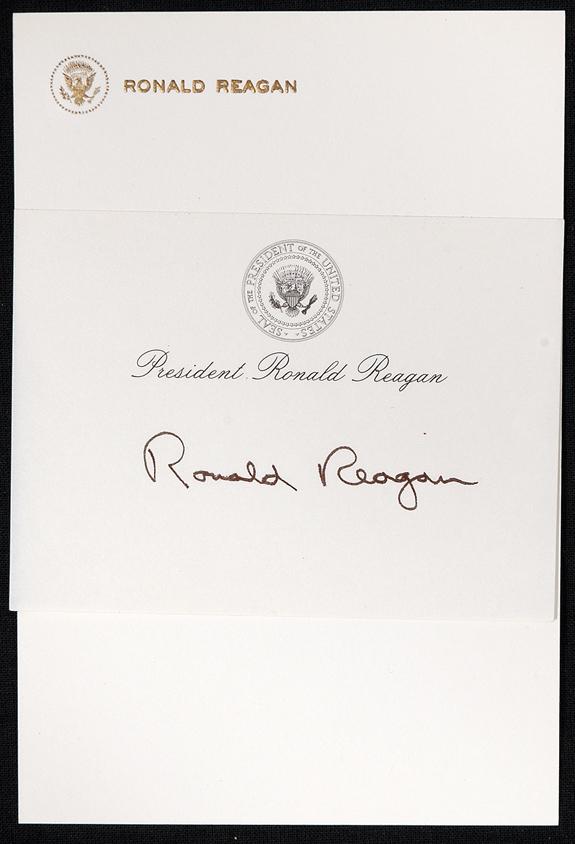 RONALD REAGAN
SEAL OF THE PRESIDENT OF THE UNITED STATES
President Ronald Reagan
Ronald Reagan